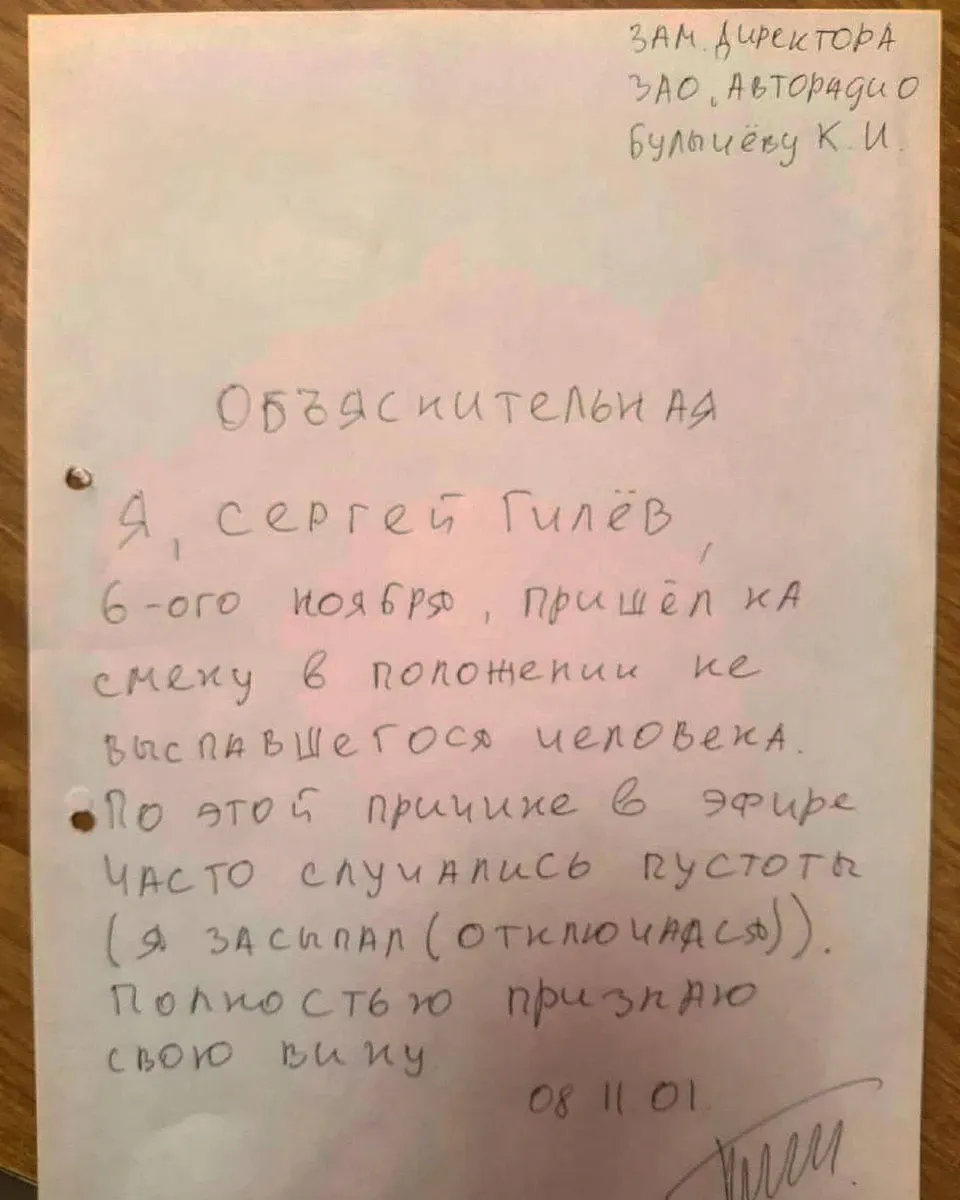 ЗАМ. ДИРЕКТОРА
ЗАО "АВТОРАДИО
БУЛЫЧЁВУ К. И.
ОБЪЯСНИТЕЛЬНАЯ
Я, СЕРГЕЙ ГИЛЁВ,
6-ого НОЯБРЯ, ПРИШЁЛ НА
СМЕНУ В ПОЛОЖЕНИИ НЕ
ВЫСПАВШЕГОСЯ ЧЕЛОВЕКА.
ПО ЭТОЙ ПРИЧИНЕ В ЭФИРЕ
ЧАСТО СЛУЧАЛИСЬ ПУСТОТЫ
(Я ЗАСЫПАЛ (ОТКЛЮЧАЛСЯ)).
ПОЛНОСТЬЮ ПРИЗНАЮ
СВОЮ ВИНУ
08 11 01.